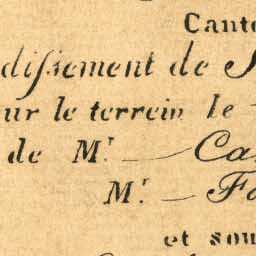 Canto
dissement de S
ur le terrein le
de Mr. — Ca
Mr. — Fo
et sou